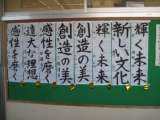 輝く未来
新しい文化
輝く未来
創造の美
創造の美
感性を磨く
遠大な理想
感性を磨く